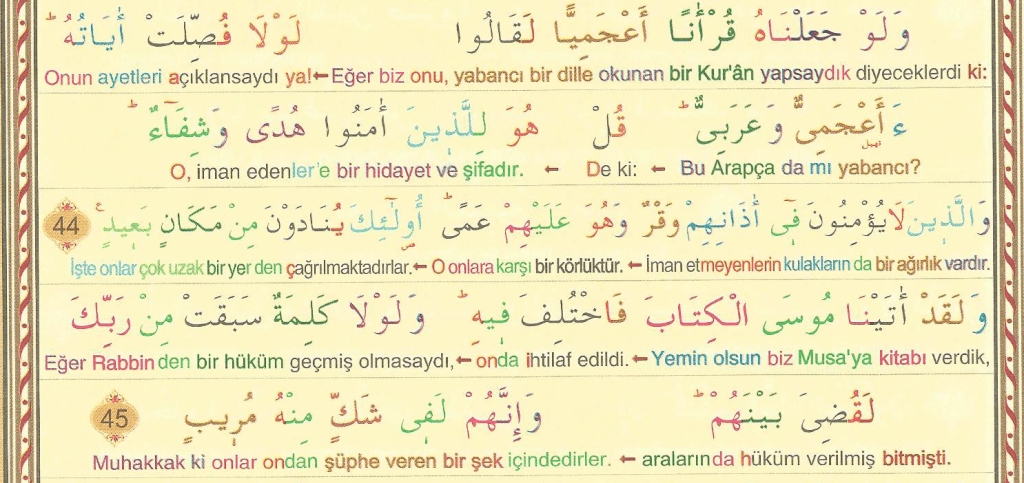 وَلَوْ جَعَلْنَاهُ قُرْأٰنًا أَعْجَمِيًّا لَقَالُوا لَوْلَا فُصِّلَتْ أٰيَاتُهُ ۜ
Onun ayetleri açıklansaydı ya!←Eğer biz onu, yabancı bir dille okunan bir Kur'ân yapsaydık diyeceklerdi ki:
ءَ أَعْجَمِىٌّ وَعَرَبِىٌّ ۜ قُلْ هُوَ لِلَّذِينَ أٰمَنُوا هُدًى وَشِفَاءٌ ۜ
O, iman edenler'e bir hidayet ve şifadır. ← De ki: ← Bu Arapça da mı yabancı?
وَالَّذِينَ لَا يُؤْمِنُونَ فِىٓ أٰذَانِهِمْ وَقْرٌ وَهُوَ عَلَيْهِمْ عَمًى ۜ أُولٰٓئِكَ يُنَادَوْنَ مِنْ مَكَانٍ بَعِيدٍ ع 44
İşte onlar çok uzak bir yer den çağrılmaktadırlar.← O onlara karşı bir körlüktür. ← İman etmeyenlerin kulakların da bir ağırlık vardır.
وَلَقَدْ أٰتَيْنَا مُوسَى الْكِتَابَ فَاخْتُلِفَ فِيهِ ۜ وَلَوْلَا كَلِمَةٌ سَبَقَتْ مِنْ رَبِّكَ
Eğer Rabbin den bir hüküm geçmiş olmasaydı,← onda ihtilaf edildi.← Yemin olsun biz Musa'ya kitabı verdik,
لَقُضِىَ بَيْنَهُمْ ۜ وَإِنَّهُمْ لَفِى شَكٍّ مِنْهُ مُرِيبٍ 45
Muhakkak ki onlar ondan şüphe veren bir şek içindedirler. ← aralarında hüküm verilmiş bitmişti.